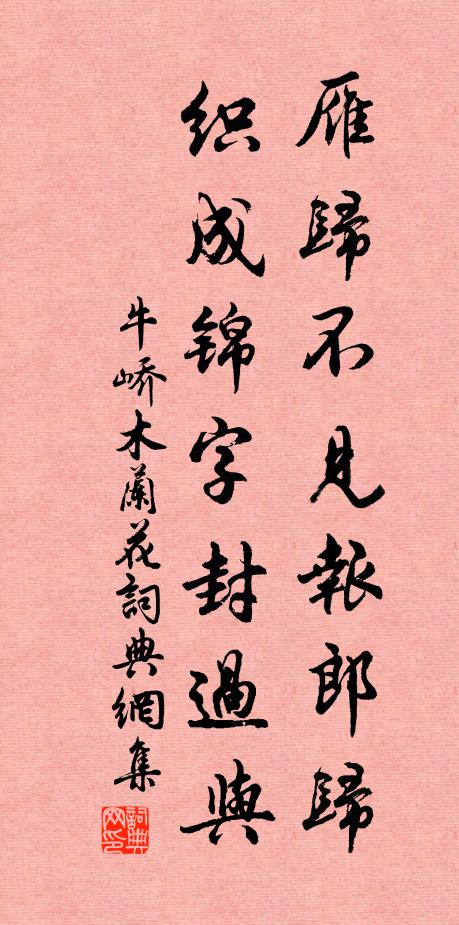 雁歸不見報郎歸
织成锦字封過與
牛峤木蘭花詞典網集
詞典网印